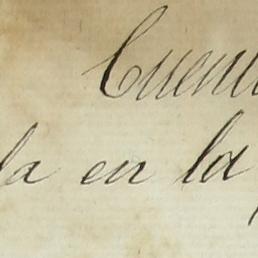 Cuent
la en la